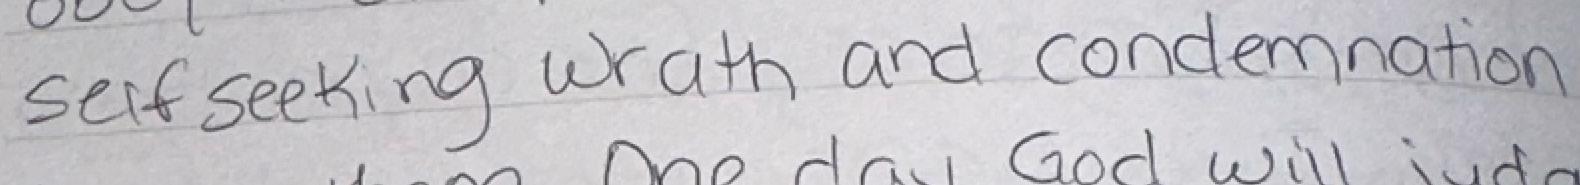 seifseeking wrath and condemnation
One day God will